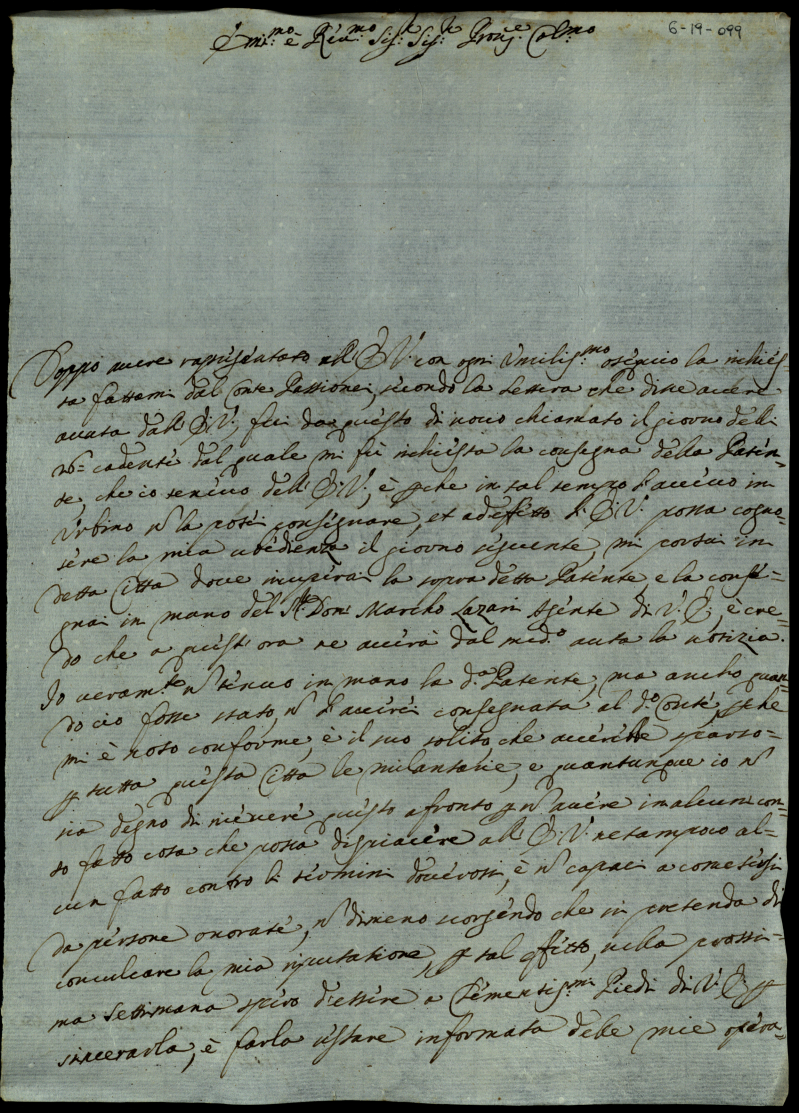 6-19-099
Em:mo e Reu:mo Sig:r Sig:r Pron:e Col:mo
Doppo auere rapresentato all'E:V: con ogni Umilis:mo osequio la richies-
ta fattami dal Conte Passionei, secondo la lettera che disse auere
auuta dall'E:V:, fui da questo di nouo chiamato il giorno delli
cadenti dal quale mi fù richiesta la consegna della Paten-
te, che io teneuo dell'E:V:, è che in tal tempo l'aueuo in
Urbino n la potei consignare, et ad effetto l'E:V: possa cogno-
sere la mia ubidienza il giorno seguente, mi portai in
detta Città doue ricuperai la sopra detta Patente, e la conse-
gnai in mano del Sr: Don Marcho Lazari Agente di V:E:, e cre-
do che a quest'ora ne auerà dal med:o auta la notizia.
Io ueram:te n teneuo in mano la d:a Patente, ma ancho quan-
do ciò fosse stato, n l'auerei consegnata al d:o Conte, che
mi è noto conforme è il suo solito, che auerebbe sparso
tutta questa Città le milantarie, e quantunque io n
sia degno di riceuere questo afronto n auere in alcun con-
to fatto cosa che possa dispiacere all'E:V: ne tampoco al-
cun fatto contro li termini doverosi, è n capaci a comettersi
da persone onorate, n dimeno scorgendo che si pretenda di
conculcare la mia riputazione, tal effetto, nella prossi-
ma settimana spero d'essere a Clementis:mi Piedi di V:E:
sincerarla, è farla restare informata delle mie opera-